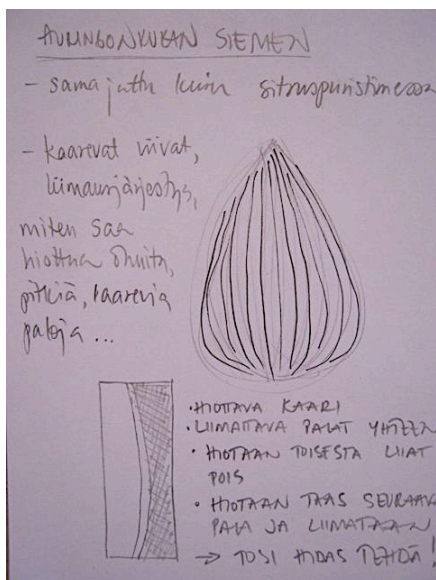 AURINGONKUKAN SIEMEN
- sama juttu kuin sitruspuristimessa
- kaarevat viivat,
liimausjärjestys,
miten saa
hiottua ohuita,
pitkiä, kaarevia
paloja ...
• HIOTTAVA KAARI
• LIIMATTAVA PALAT YHTEEN
• HIOTAAN TOISESTA LIIAT
POIS
• HIOTAAN TAAS SEURAAVA
PALA JA LIIMATAAN
→ TOSI HIDAS TEHDÄ!